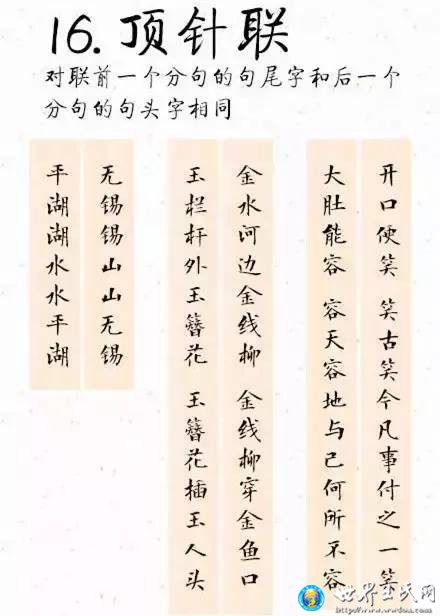 16.顶针联
对联前一个分句的句尾字和后一个
分句的句头字相同
开口便笑 笑古笑今凡事付之一笑
大肚能容 容天容地与己何所不容
金水河边金线柳 金线柳穿金鱼口
玉栏杆外玉簪花 玉簪花插玉人头
无锡锡山山无锡
平湖湖水水平湖
世界王氏网